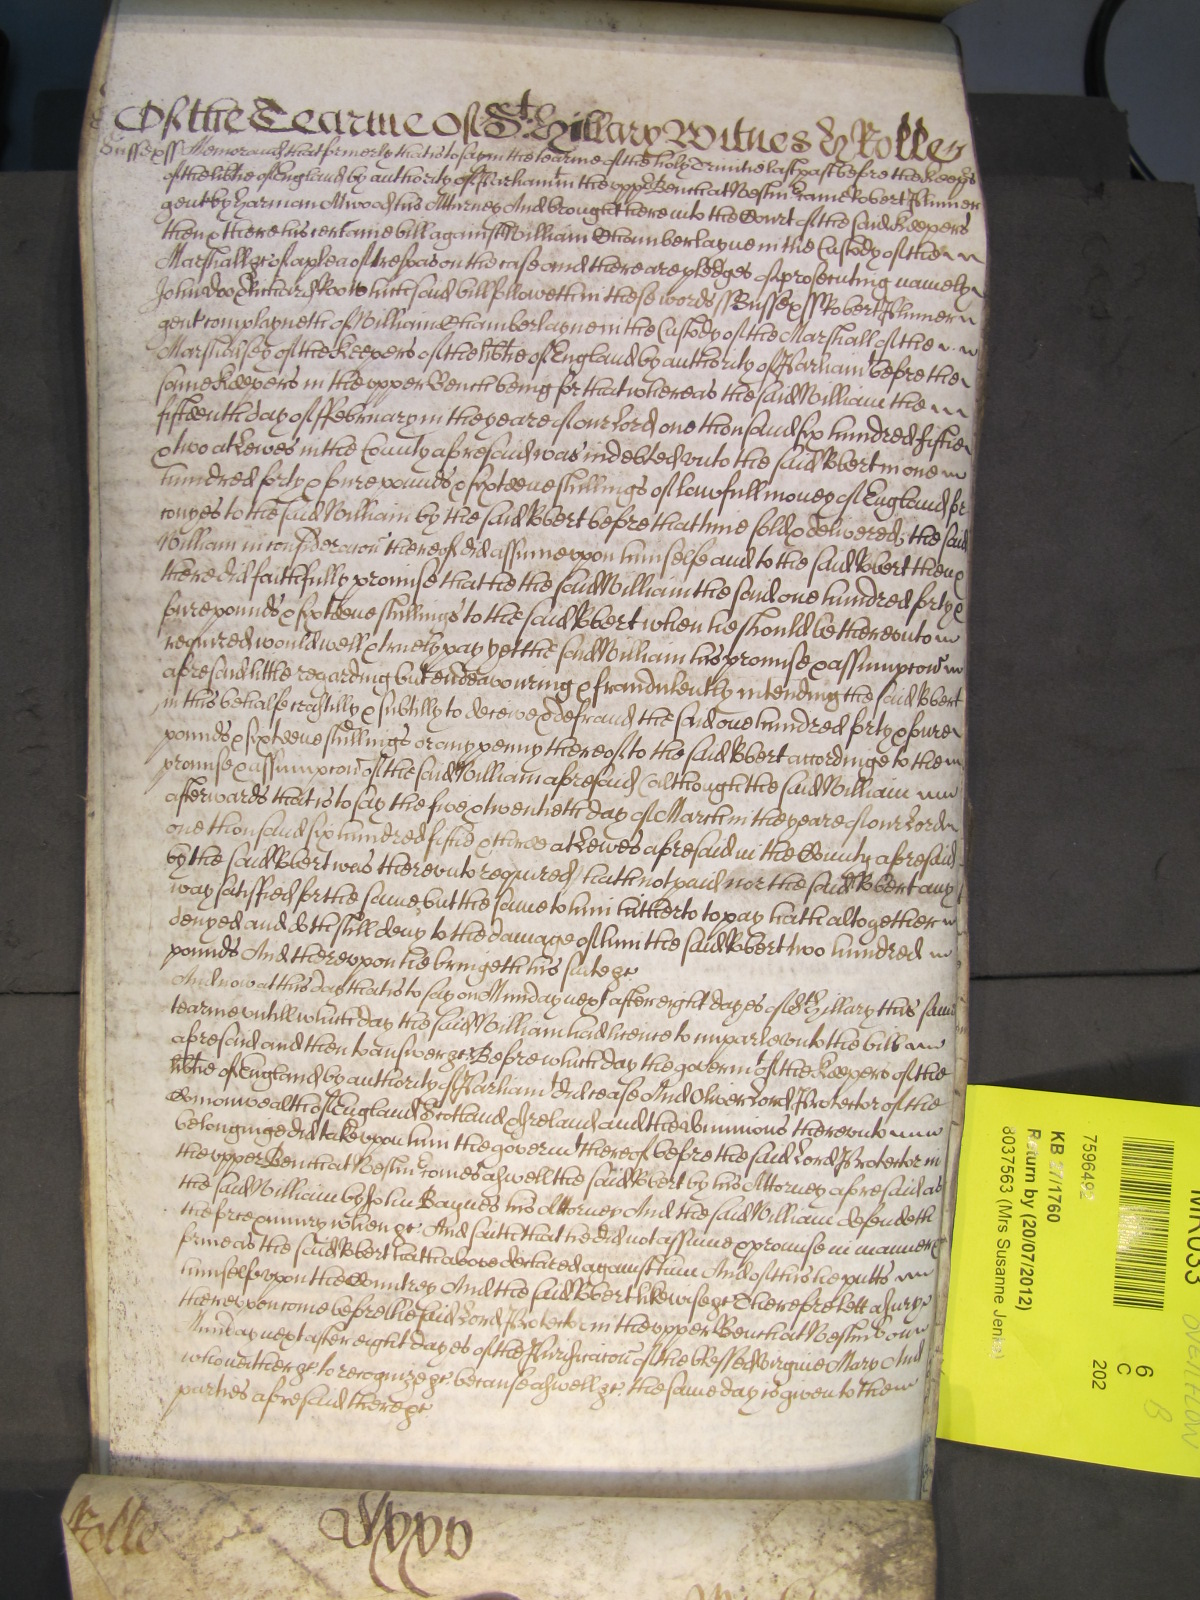 Of the Tearme of St Hillary Witnes H Rolle
Sussex ss Memorand that formerly that is to say in the tearme of the holy Trinitie last past before the Keepers
of the libtie of England by authority of Parliamt in the upper Bench at Westm came Robert Plumer
gent by Harman Atwood his Attorney And brought here into the Court of the said Keepers
then & there his certaine bill against William Chamberlayne in the Custody of the
Marshall &c of a plea of trespas on the case and there are pledges of prosecuting namely
John Doo & Richard Roo which said bill followeth in these words ss Sussex ss Robert Plumer
gent complayneth of William Chamberlayne in the Custody of the Marshall of the
Marshalsey of the Keepers of the libtie of England by authority of Parliamt before the
same Keepers in the upper Bench being for that whereas the said William the
fifteenth day of ffebruary in the yeare of our Lord one thousand six hundred fiftie
& two at Lewes in the County aforesaid was indebted unto the said Robert in one
hundred forty & foure pounds & sixteene shillings of lawfull money of England for
to the said William by the said Robert before that time sold & delivered, the said
William in consideracon thereof did assume upon himselfe and to the said Robert then &
there did faithfully promise that he the said William the said one hundred forty &
foure pounds & sixteene shillings to the said Robert when he should be thereunto
required would well & truely pay yet the said William his promise & assumpcon
aforesaid little regarding but endeavouring & fraudulently intending the said Robert
in this behalfe craftily & subtilly to deceive & defraud the said one hundred forty & foure
pounds & sixteene shillings or any penny thereof to the said Robert accordinge to the
promise & assumpcon of the said William aforesaid (although the said William
afterwards that is to say the five & twentieth day of March in the yeare of our Lord
one thousand six hundred fiftie & three at Lewes aforesaid in the County aforesaid
by the said Robert was thereunto required) hath not paid nor the said Robert any
way satisfied for the same but the same to him hitherto to pay hath altogether
denyed and doth still deny to the damage of him the said Robert two hundred
pounds And thereupon he bringeth his suite &c
And now at this day that is to say on Munday next after eight dayes of St Hillary this same
tearme untill which day the said William had licence to imparle unto the bill
aforesaid and then to answer &c Before which day the governmt of the Keepers of the
libtie of England by authority of Parliamt did cease And Oliver Lord Protector of the
Comonwealth of England Scotland & Ireland and the dominions thereunto
belonginge did take upon him the governmt thereof before the said Lord Protector in
the upper Bench at Westm comes aswell the said Robert by his Attorney aforesaid as
the said William by John Baynes his Attorney And the said William defendeth
the force & injury when &c And saith that he did not assume & promise in manner &
forme as the said Robert hath above declared against him And of this he putts
himselfe upon the Countrey And the said Robert likewise &c Therefore lett a Jury
thereupon come before the said Lord Protector in the upper Bench at Westm on
Munday next after eight dayes of the Purificacon of the blessed Virgine Mary And
who neither &c to recognize &c because aswell &c the same day is given to the
parties aforesaid there &c
Rolle
7596492
KB 57/1760
Return by (20/07/2012)
8037563 (Mrs Susanne Jenks)
6
C
202